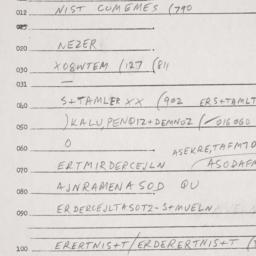 012 NIST CUMEMES (790
015
020 NEZER
030 XO8WTEM (127 (811
031 —
040 S+TAMLER XX (902 ERS+TAMLT
050 )KALU,PENDIZ+DEMNOZ (
060 O ASEKRE,TAFMTO
060 ERTMIRDERCEJLN ASODAFM
080 AJNRAMENA SOD QU
090 ERDERCEJLTASOTZ-S+MUELN
100 ERERTNIS+T/ERDERERTNIS+T (